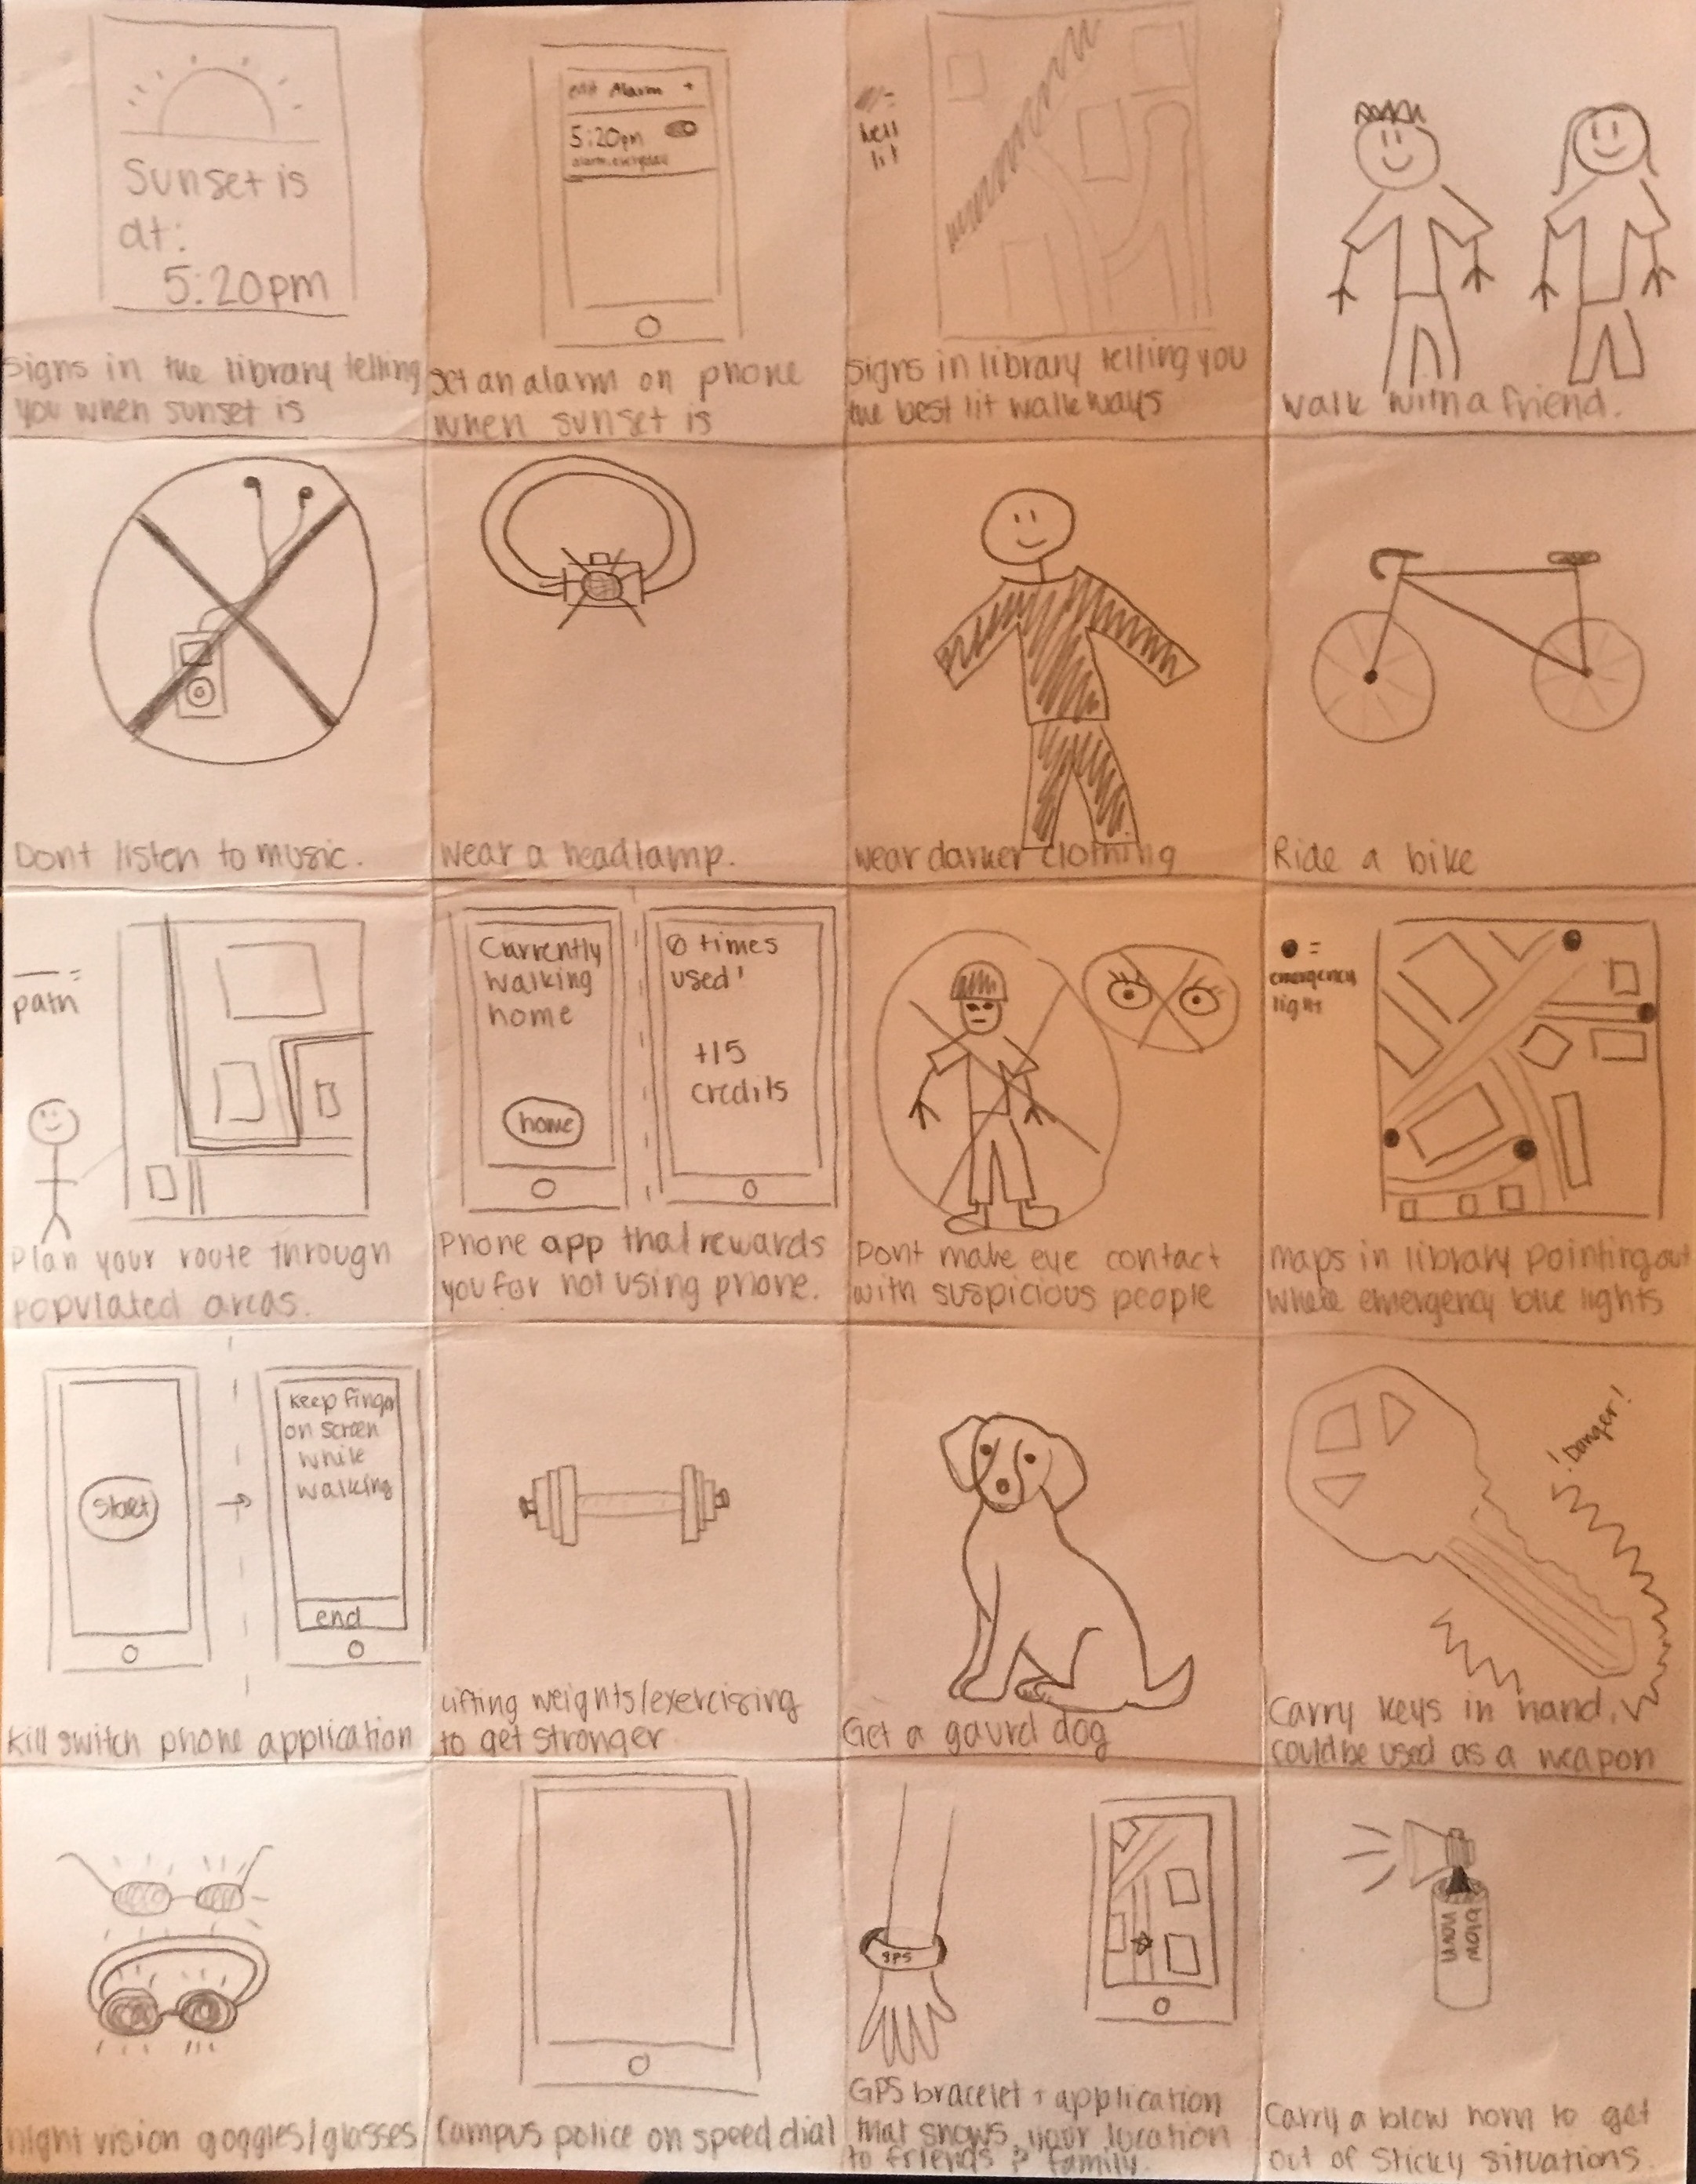 Sunset is
at:
5:20pm
Signs in the library telling
you when sunset is
edit Alarm +
5:20pm
alarm, everyday
Set an alarm on phone
when sunset is
=
well
lit
Signs in library telling you
the best lit walkways
walk with a friend.
Dont listen to music.
Wear a headlamp.
wear darker clothing
Ride a bike
=
path
Plan your route through
populated areas.
Currently
walking
home
home
0 times
used!
+15
credits
Phone app that rewards
you for not using phone.
Dont make eye contact
with suspicious people
=
emergency
light
maps in library pointing out
where emergency blue lights
start
keep finger
on screen
while
walking
end
kill switch phone application
Lifting weights/exercising
to get stronger
Get a gaurd dog
! Danger!
Carry keys in hand,
could be used as a weapon
night vision goggles/glasses
Campus police on speed dial
gps
GPS bracelet + application
that shows your location
to friends & family.
blow
horn
Carry a blow horn to get
out of sticky situations.